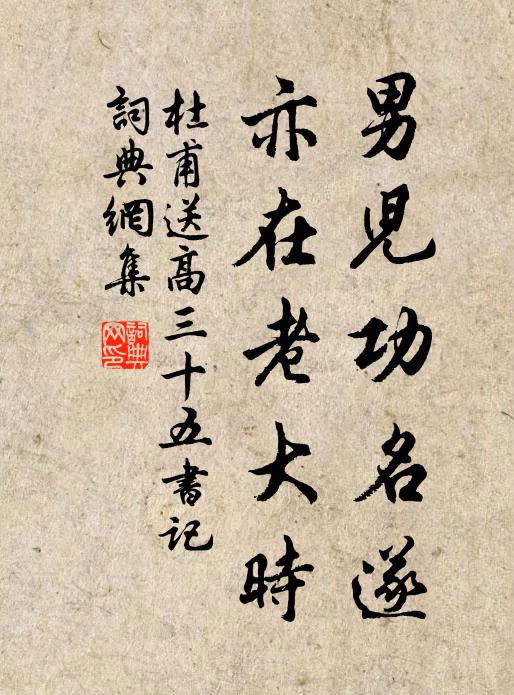 男児功名遂
亦在老大時
杜甫送高三十五書記
詞典網集
詞典网印